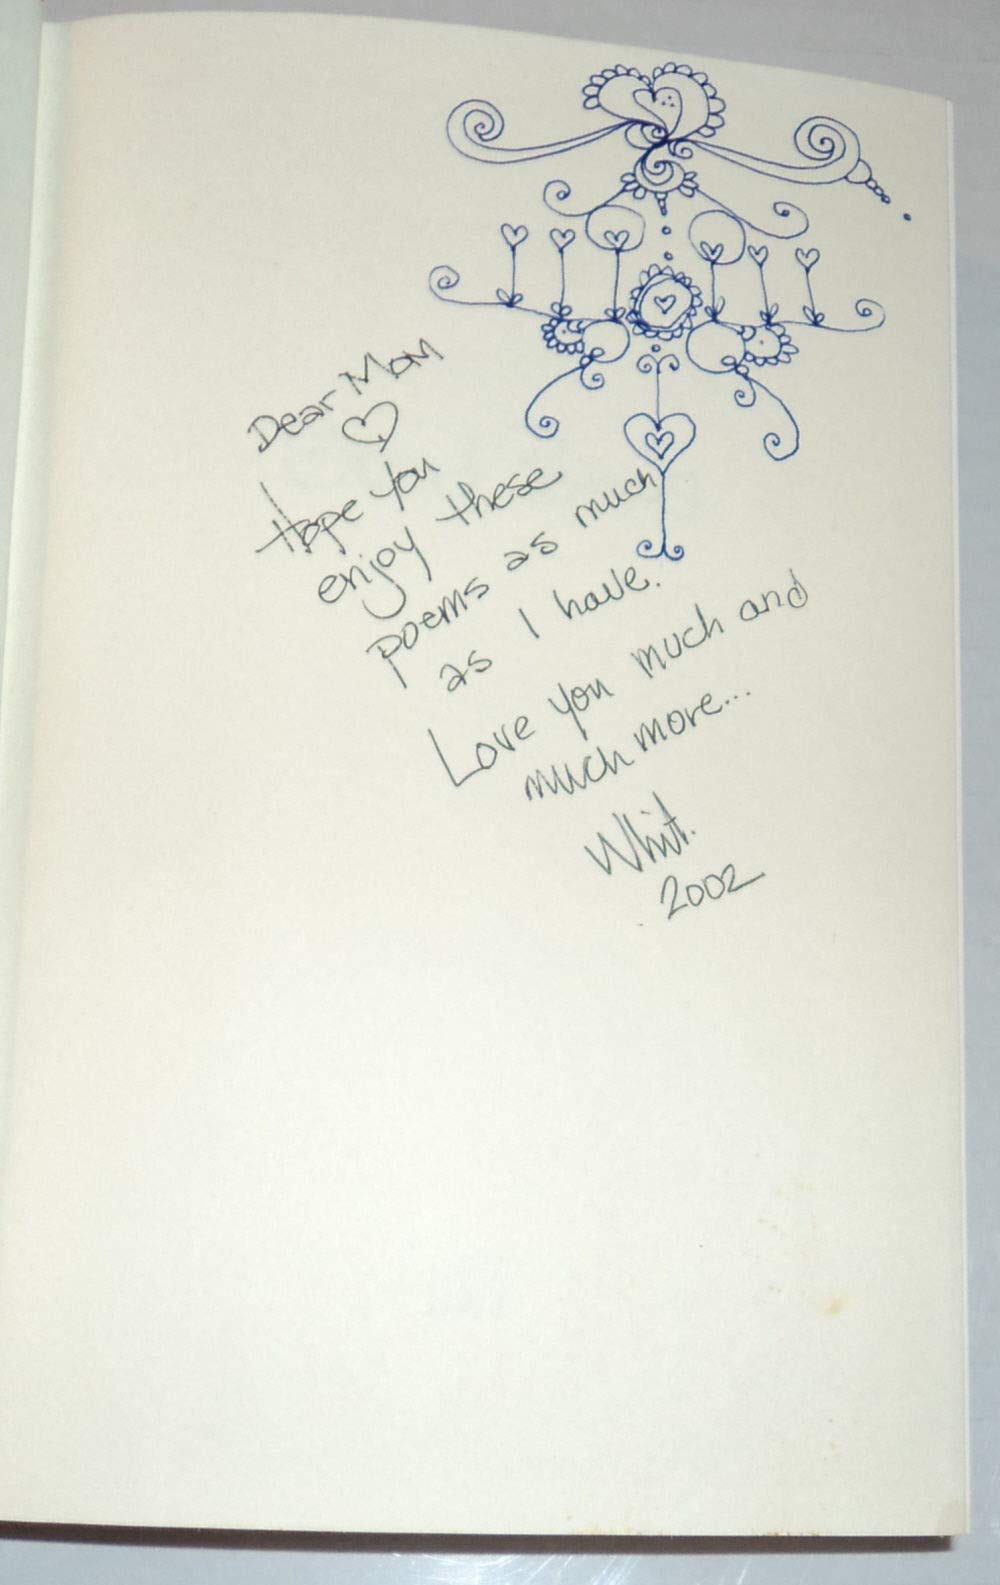 Dear Mom
Hope you
enjoy these
poems as much
as I have.
Love you much and
much more...
Whit.
2002